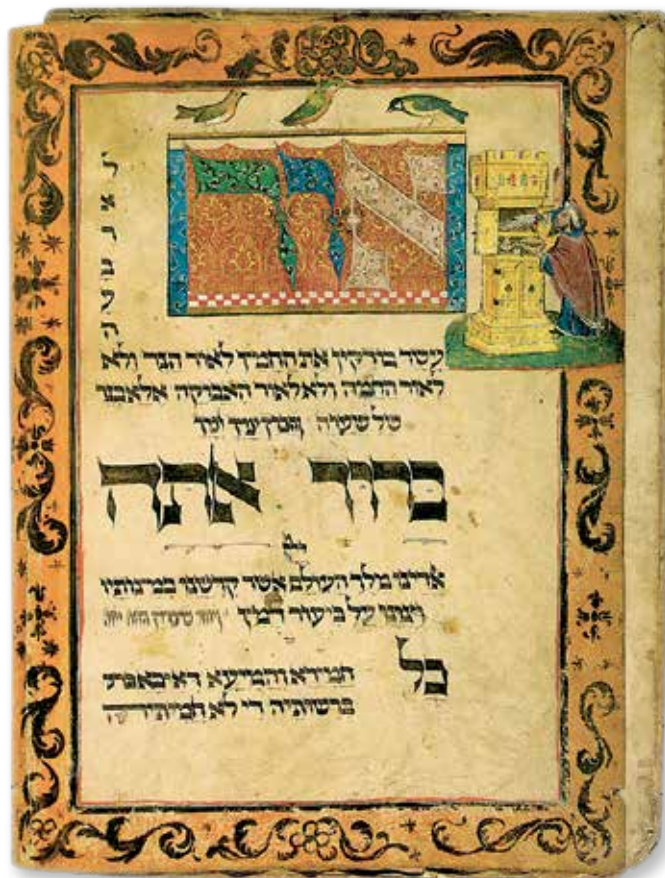 אור
לארבעה
עשר בודקין את החמץ לאור הנר ולא
לאור החמה ולא לאור האבוקה אלא בנר
של שעוה
ברוך אתה
יי
אלהינו מלך העולם אשר קדשנו במצותיו
וצונו על ביעור חמץ
כל
חמירא וחמיעא דאיכא
ברשותיה די לא חמיתיה